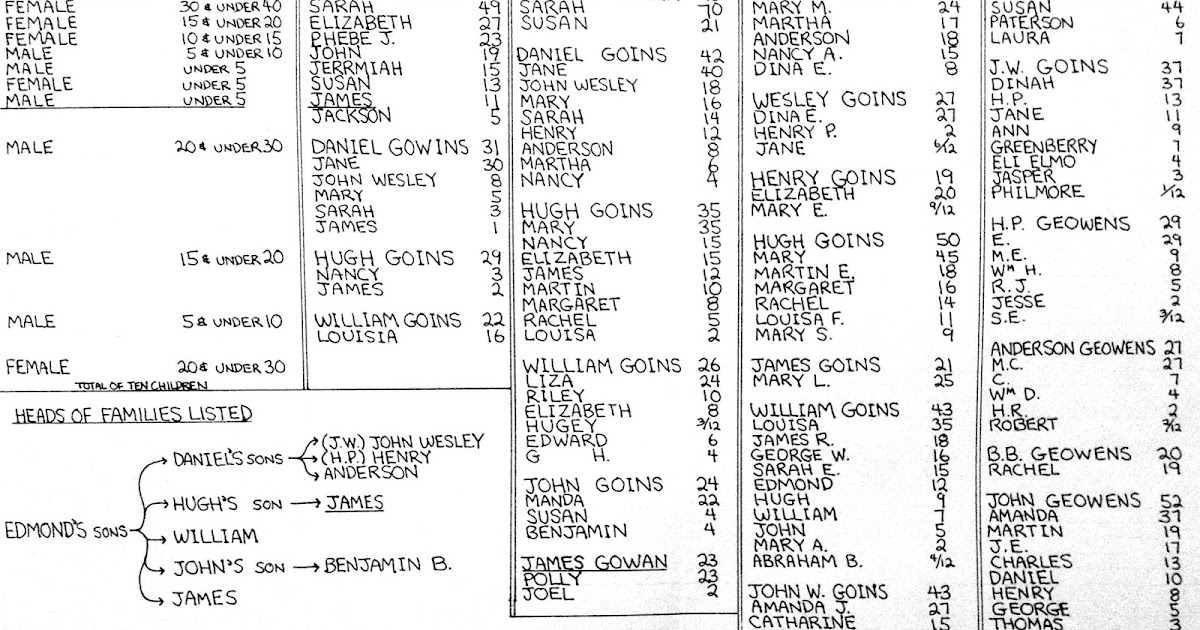 FEMALE 30 & UNDER 40
FEMALE 15 & UNDER 20
FEMALE 10 & UNDER 15
MALE 5 & UNDER 10
MALE UNDER 5
FEMALE UNDER 5
MALE UNDER 5
MALE 20 & UNDER 30
MALE 15 & UNDER 20
MALE 5 & UNDER 10
FEMALE 20 & UNDER 30
TOTAL OF TEN CHILDREN
SARAH 49
ELIZABETH 27
PHEBE J. 23
JOHN 19
JERRMIAH 15
SUSAN 13
JAMES 11
JACKSON 5
DANIEL GOWINS 31
JANE 30
JOHN WESLEY 8
MARY 5
SARAH 3
JAMES 1
HUGH GOINS 29
NANCY 3
JAMES 2
WILLIAM GOINS 22
LOUISIA 16
HEADS OF FAMILIES LISTED
EDMOND'S SONS
DANIEL'S SONS
(J.W.) JOHN WESLEY
(H.P.) HENRY
ANDERSON
HUGH'S SON JAMES
WILLIAM
JOHN'S SON BENJAMIN B.
JAMES
SARAH 70
SUSAN 21
DANIEL GOINS 42
JANE 40
JOHN WESLEY 18
MARY 16
SARAH 14
HENRY 12
ANDERSON 8
MARTHA 6
NANCY 4
HUGH GOINS 35
MARY 35
NANCY 15
ELIZABETH 15
JAMES 12
MARTIN 10
MARGARET 8
RACHEL 5
LOUISA 2
WILLIAM GOINS 26
LIZA 24
RILEY 10
ELIZABETH 8
HUGEY 3/12
EDWARD 6
G H. 4
JOHN GOINS 24
MANDA 22
SUSAN 4
BENJAMIN 4
JAMES GOWAN 23
POLLY 23
JOEL 2
MARY M. 24
MARTHA 17
ANDERSON 18
NANCY A. 15
DINA E. 8
WESLEY GOINS 27
DINA E. 27
HENRY P. 2
JANE 5/12
HENRY GOINS 19
ELIZABETH 20
MARY E. 9/12
HUGH GOINS 50
MARY 45
MARTIN E. 18
MARGARET 16
RACHEL 14
LOUISA F. 11
MARY S. 9
JAMES GOINS 21
MARY L. 25
WILLIAM GOINS 43
LOUISA 35
JAMES R. 18
GEORGE W. 16
SARAH E. 15
EDMOND 12
HUGH 9
WILLIAM 7
JOHN 5
MARY A. 2
ABRAHAM B. 4/12
JOHN W. GOINS 43
AMANDA J. 27
CATHARINE 15
SUSAN 44
PATERSON 6
LAURA 7
J.W. GOINS 37
DINAH 37
H.P. 13
JANE 11
ANN 9
GREENBERRY 7
ELI ELMO 4
JASPER 3
PHILMORE 1/12
H.P. GEOWENS 29
E. 29
M.E. 9
WM H. 8
R.J. 5
JESSE 2
S.E. 3/12
ANDERSON GEOWENS 27
M.C. 27
C. 7
WM D. 4
H.R. 2
ROBERT 7/12
B.B. GEOWENS 20
RACHEL 19
JOHN GEOWENS 52
AMANDA 37
MARTIN 19
J.E. 17
CHARLES 13
DANIEL 10
HENRY 8
GEORGE 5
THOMAS 3